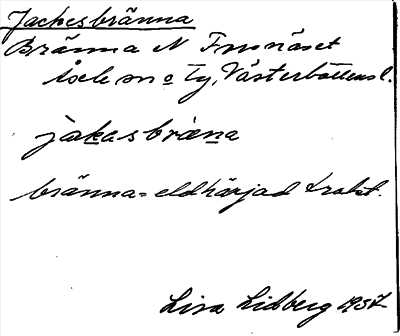 Jackesbränna
Bränna N Furunäset
Åsele sn o Ty, Västerbottens l.
jakasbrᴂna
bränna = eldhärjad trakt.
Lisa Lidberg 1937